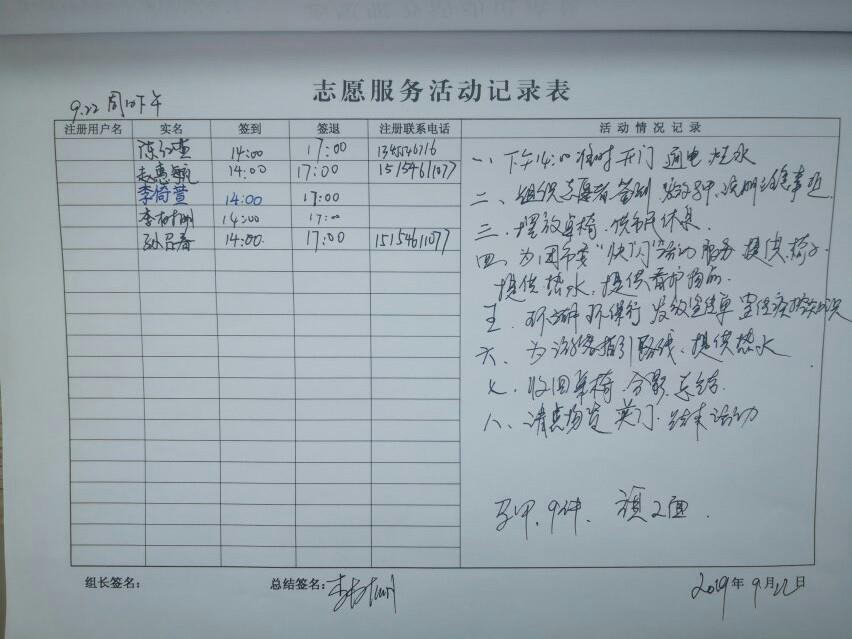 志愿服务活动记录表
9.22 周日下午
注册用户名 实名 签到 签退 注册联系电话 活动情况记录
14:00 17:00
赵惠敏 14:00 17:00 15154611077
李倚萱 14:00 17:00
李树洲 14:00 17:00
14:00 17:00 15154611077
一、下午14:00准时开门 通电 烧水
二、组织志愿者签到 发放马甲、说明注意事项
三、摆放桌椅、供市民休息
四、为团市委“快闪”活动服务 提供椅子
提供热水、提供看护物品.
五、环湖环保行 发放宣传单 宣传
六、为游客指引路线、提供热水
七、收回桌椅、合影 总结
八、清点物资 关门 结束活动
马甲、9件、旗2面.
组长签名: 总结签名:李树洲 2019年9月22日